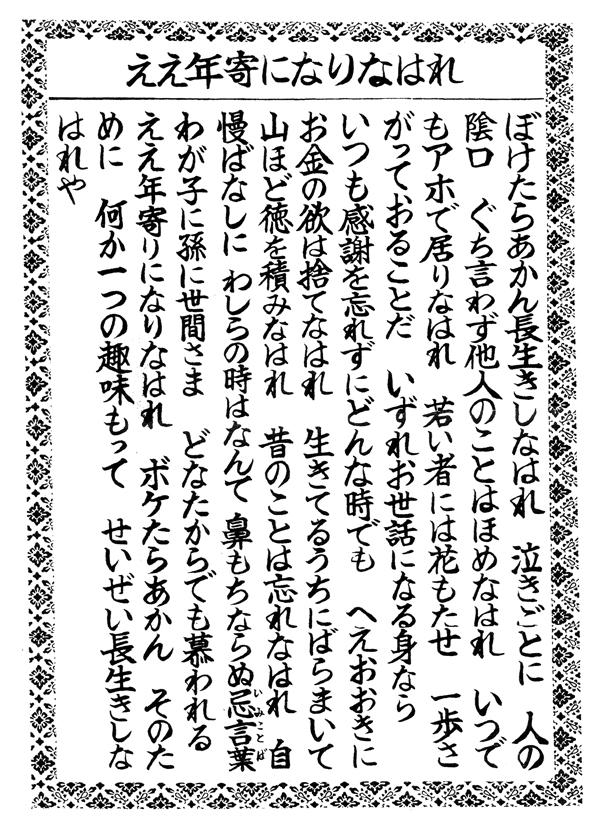 ええ年寄になりなはれ
ぼけたらあかん長生きしなはれ　泣きごとに　人の
陰口　ぐち言わず他人のことはほめなはれ　いつで
もアホで居りなはれ　若い者には花もたせ　一歩さ
がって、おることだ　いずれお世話になる身なら
いつも感謝を忘れずにどんな時でも　へえおおきに
お金の欲は捨てなはれ　生きてるうちにばらまいて
山ほど徳を積みなはれ　昔のことは忘れなはれ　自
慢ばなしに　わしらの時はなんて　鼻もちならぬ忌言葉
いみことば
わが子に孫に世間さま　どなたからでも慕われる
ええ年寄りになりなはれ　ボケたらあかん　そのた
めに　何か一つの趣味もって　せいぜい長生きしな
はれや